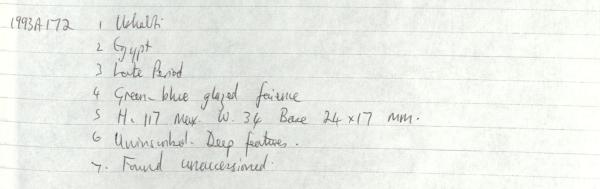 1993A172 1 Ushabti
2 Egypt
3 Late Period
4 Green-blue glazed faience
5 H. 117 Max. W. 34 Base 24 x 17 mm.
6 Uninscribed. Deep features.
7. Found unaccessioned.